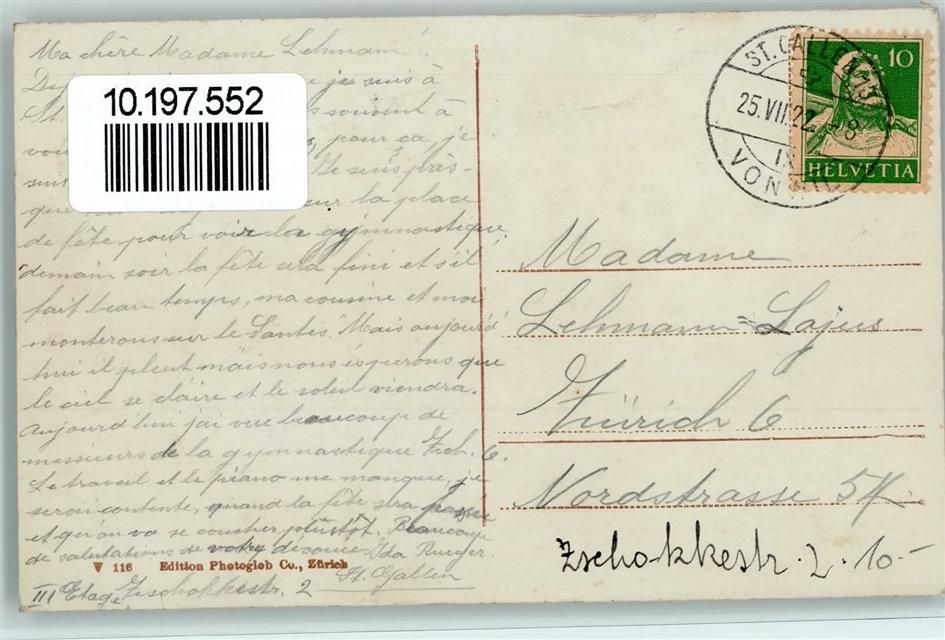 Ma chère Madame Lehmann!
je suis à
St. souvent à
pour ça, je
suis Je suis près-
que sur la place
de fête pour voir la gymnastique,
demain soir la fête sera fini et s'il
fait beau temps, ma cousine et moi
monterons sur le "Säntis". Mais aujourd'
hui il pleut mais nous ésperons que
le ciel se claire et le soleil viendra.
Aujourd'hui j'ai vue beaucoup de
messieurs de la gymnastique Zch. 6.
Le travail et le piano me manque, je
serai contente, quand la fête sera passée
et qu'on va se coucher plûstôt. Beaucoup
de salutations de votre dévouée Ida Rueger.
St. Gallen
III Etage Zschokkestr. 2
10.197.552
▼ 116 Edition Photoglob Co., Zürich
ST. GALLEN
25.VII.22. -8
IX
VONWIL
10
HELVETIA
Madame
Lehmann-Lajus
Zürich 6
Nordstrasse 54
Zschokkestr. 2. 10.-